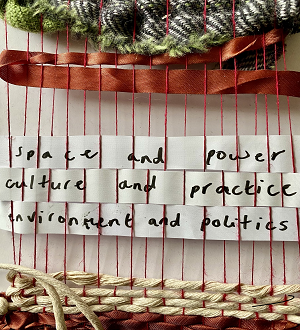 space and power
culture and practice
environment and politics